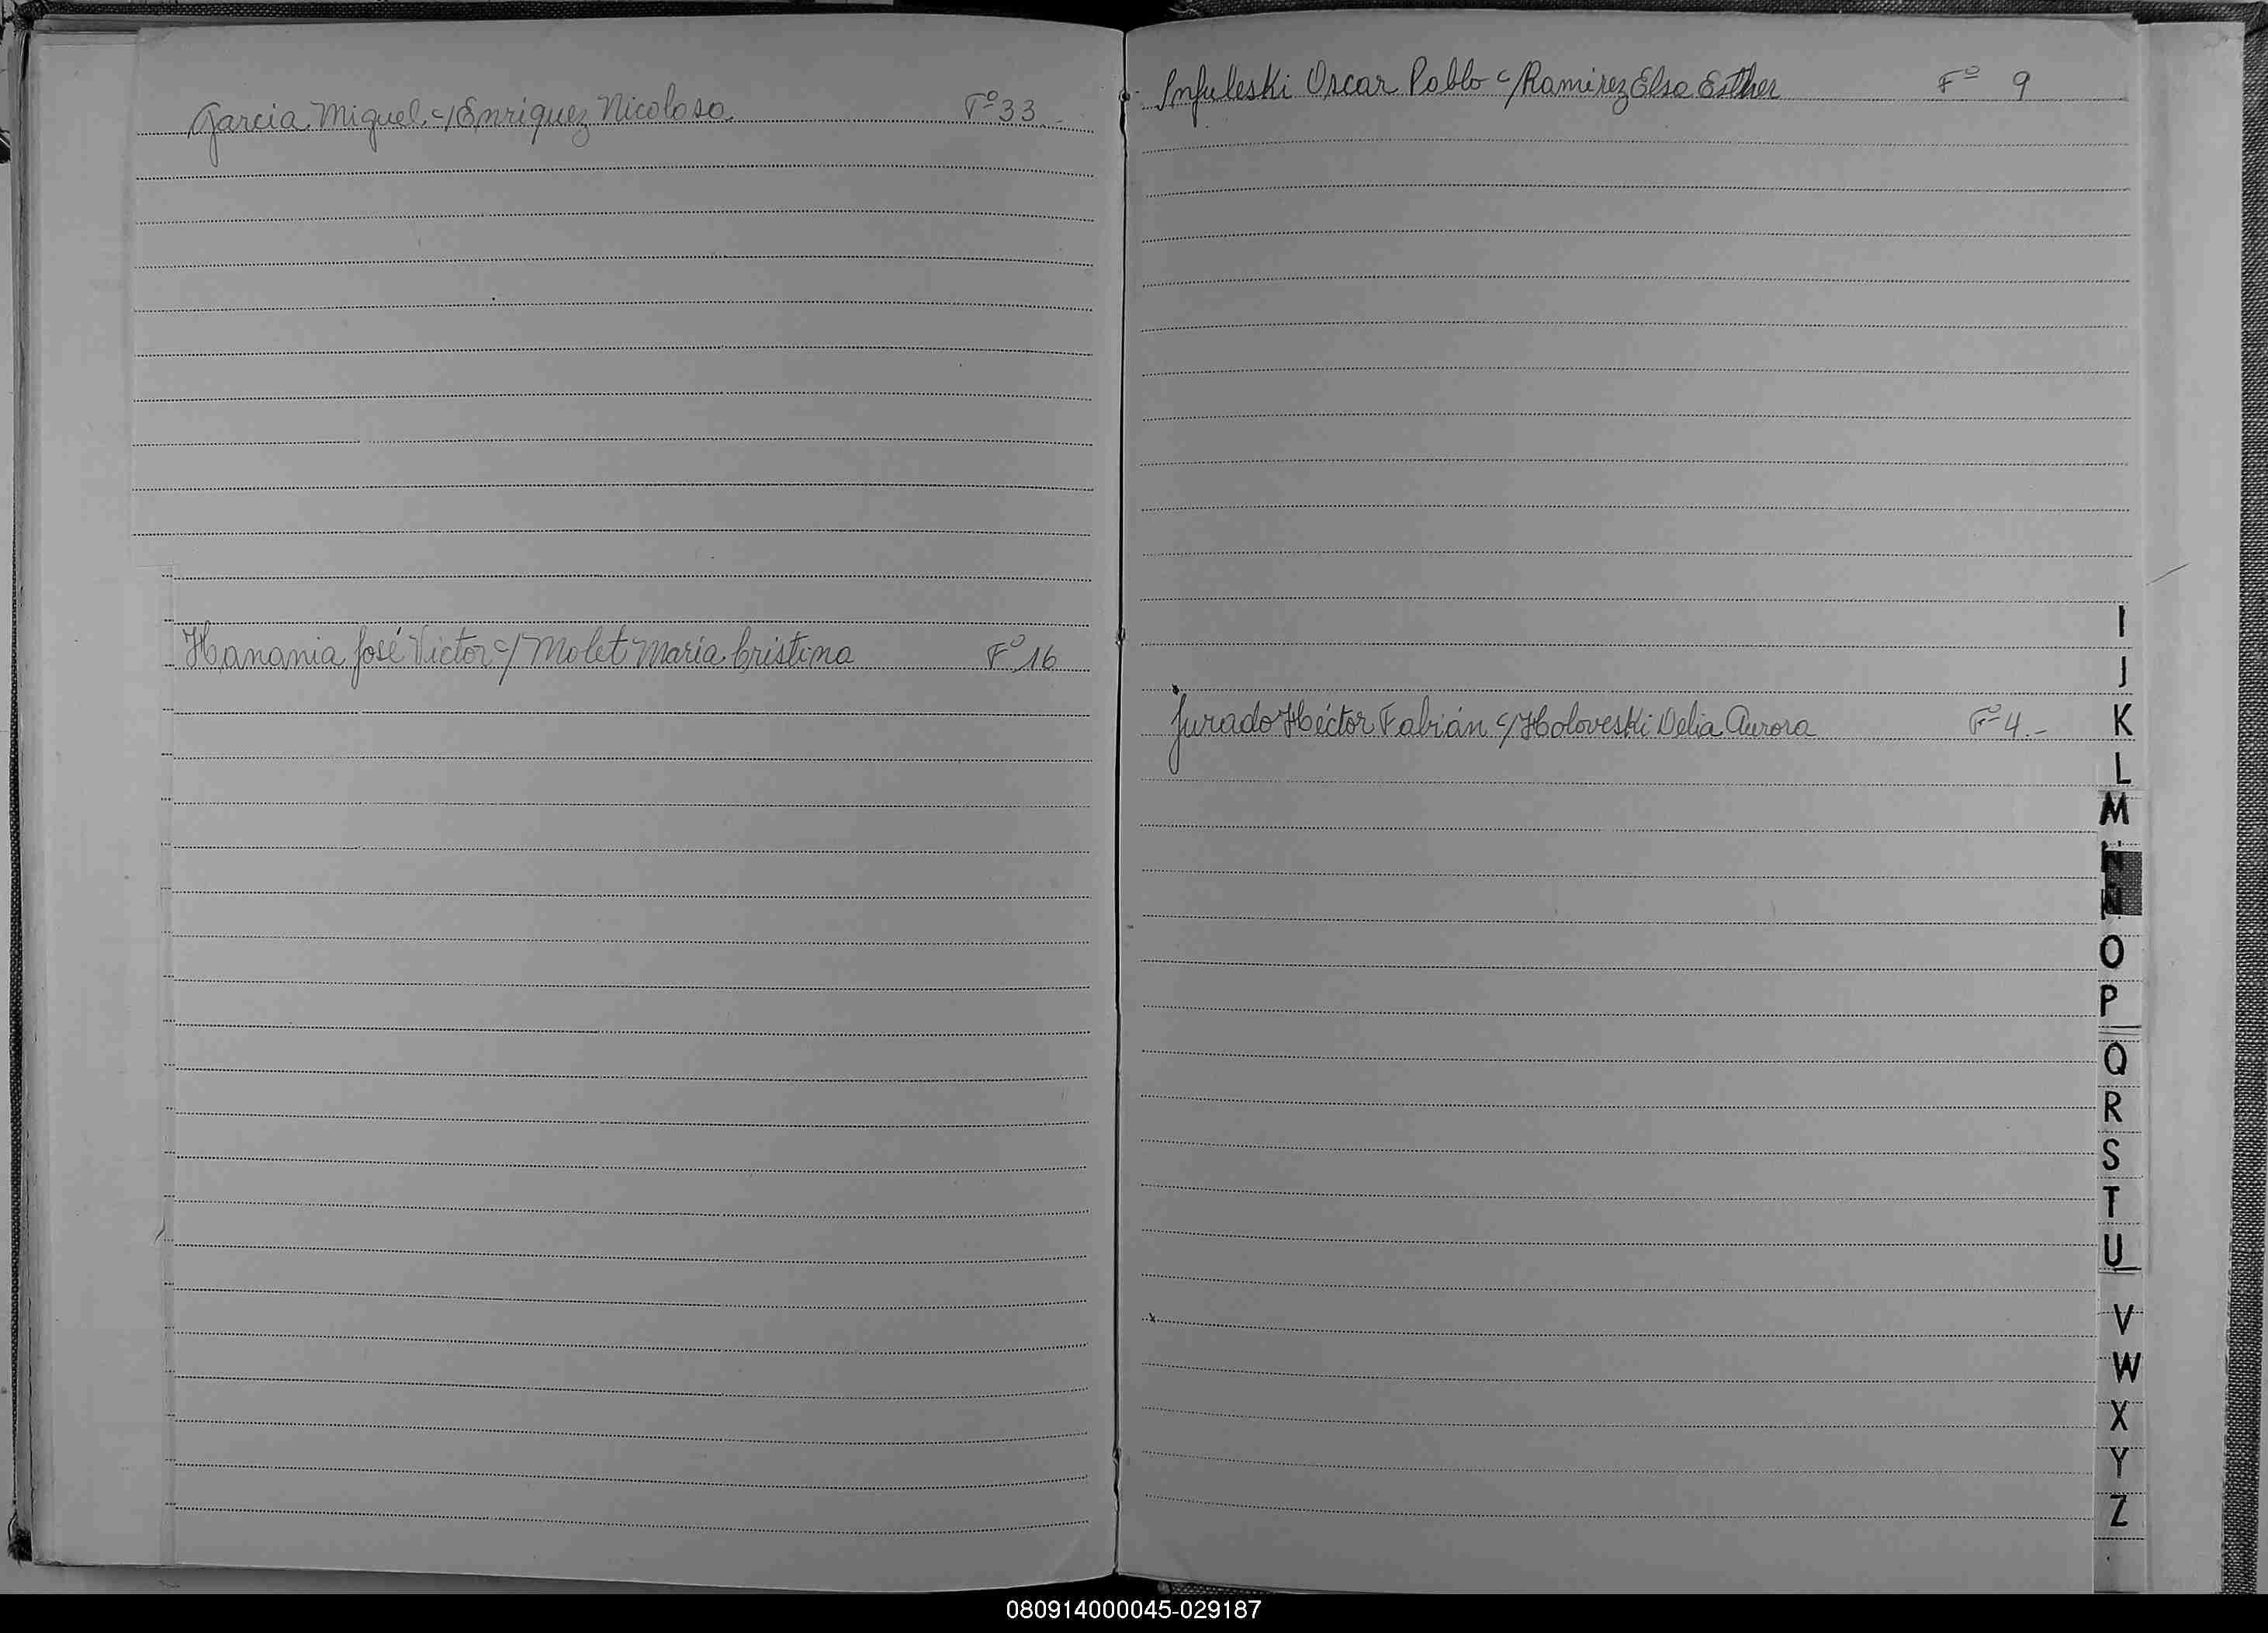 Garcia Miguel c/ Enriquez Nicolasa. Fº 33.-
Hanania José Victor c/ Molet María Cristina Fº 16
Infuleski Oscar Pablo c/ Ramirez Elsa Esther Fº 9
Jurado Héctor Fabián c/ Holoveski Delia Aurora Fº 4.-
I
J
K
L
M
N
Ñ
O
P
Q
R
S
T
U
V
W
X
Y
Z
080914000045-029187